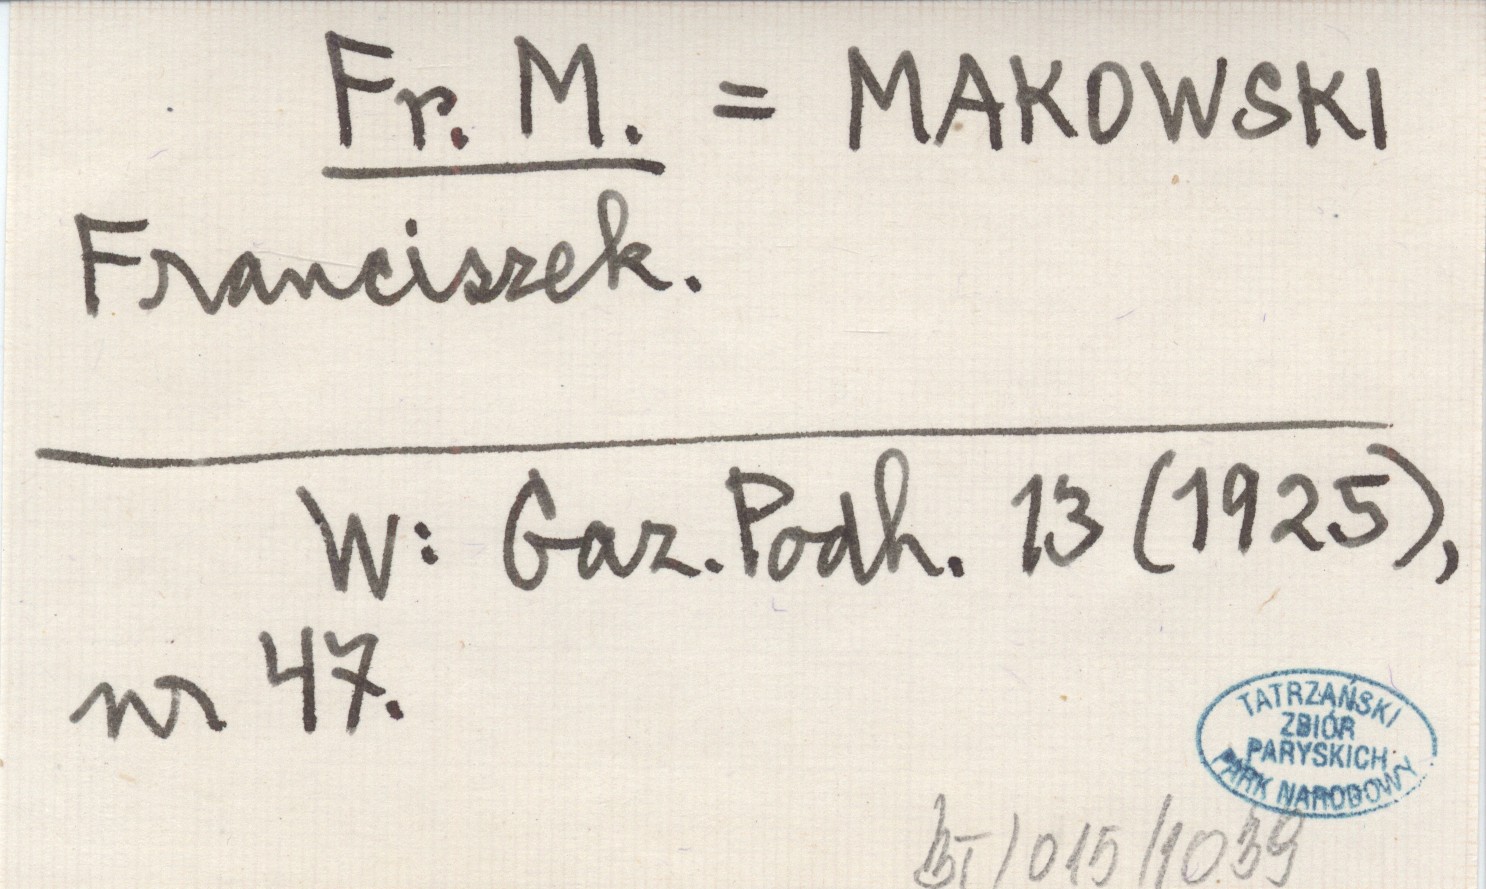 Fr. M. = MAKOWSKI
Franciszek.
W: Gaz. Podh. 13 (1925),
nr 47.
TATRZAŃSKI
ZBIÓR
PARYSKICH
PARK NARODOWY
BI/015/1039